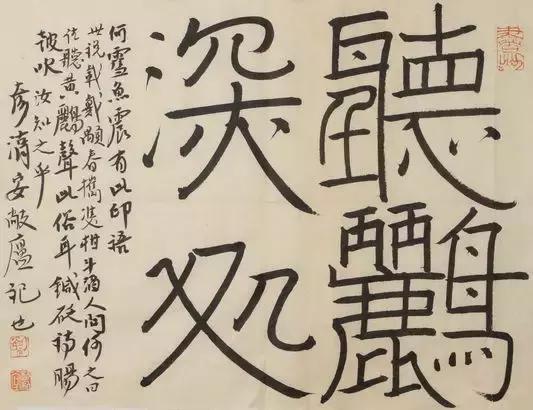 聽鸝
深処
何雪魚震有此印語
世說載戴顒春攜雙柑斗酒人問何之曰
往聽黃鸝聲此俗耳鍼砭詩腸
鼓吹汝知之乎
彥安廬記也